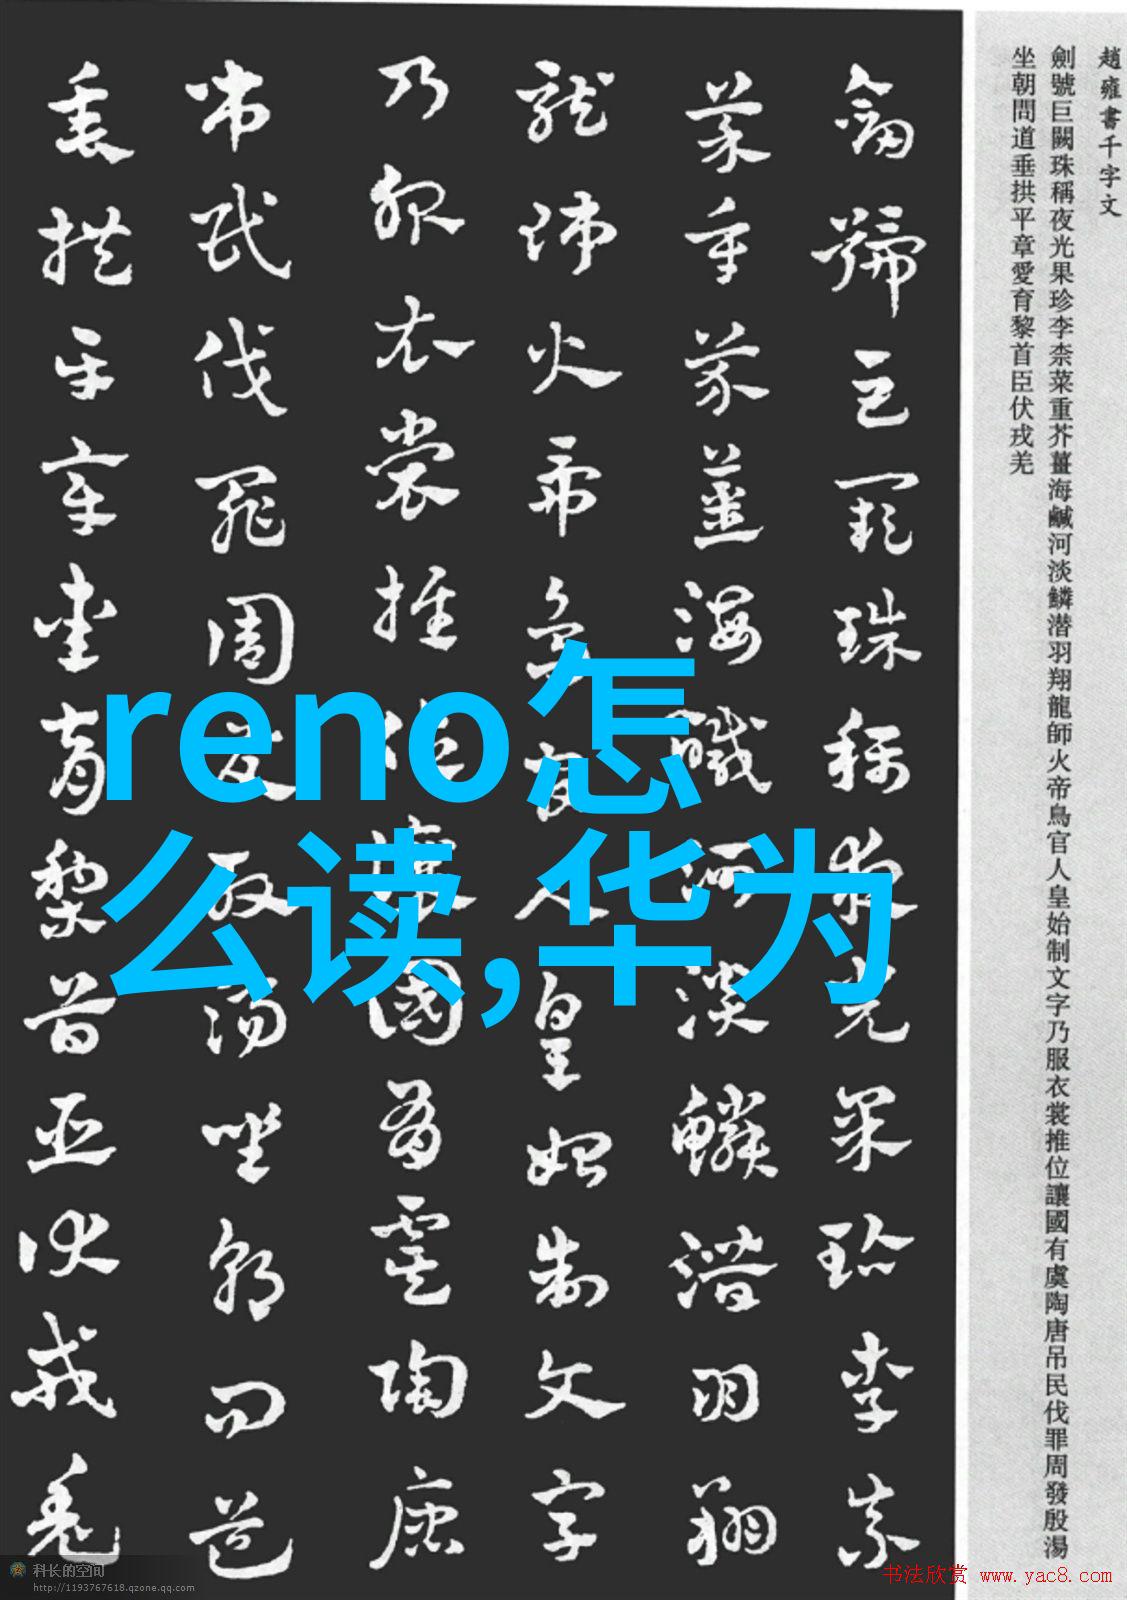 趙雍書千字文
劍號巨闕珠稱夜光果珍李柰菜重芥薑海鹹河淡鱗潜羽翔龍師火帝鳥官人皇始制文字乃服衣裳推位讓國有虞陶唐吊民伐罪周發殷湯
坐朝問道垂拱平章愛育黎首臣伏戎羌
劍號巨闕珠稱夜光果珍李柰
菜重芥薑海鹹河淡鱗潜羽翔
龍師火帝鳥官人皇始制文字
乃服衣裳推位讓國有虞陶唐
吊民伐罪周發殷湯坐朝問道
垂拱平章愛育黎首臣伏戎羌
reno怎
么读,华为
科长的空间
http://1193767618.qzone.qq.com
书法欣赏 www.yac8.com